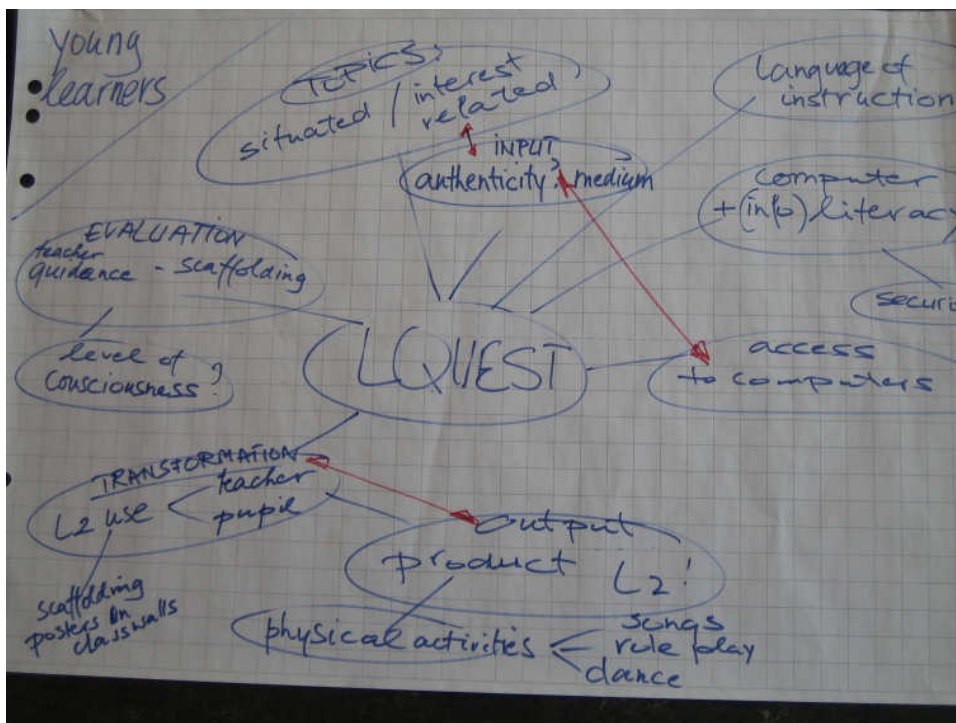 young
learners
TOPICS:
situated / interest
related
INPUT
authenticity? medium
language of
instruction
computer
+ (info) literacy
securi
EVALUATION
teacher
guidance - scaffolding
level of
consciousness?
LQUEST
access
to computers
TRANSFORMATION
L2 use < teacher
pupil
scaffolding
posters on
classwalls
output
product L2!
physical activities < songs
role play
dance